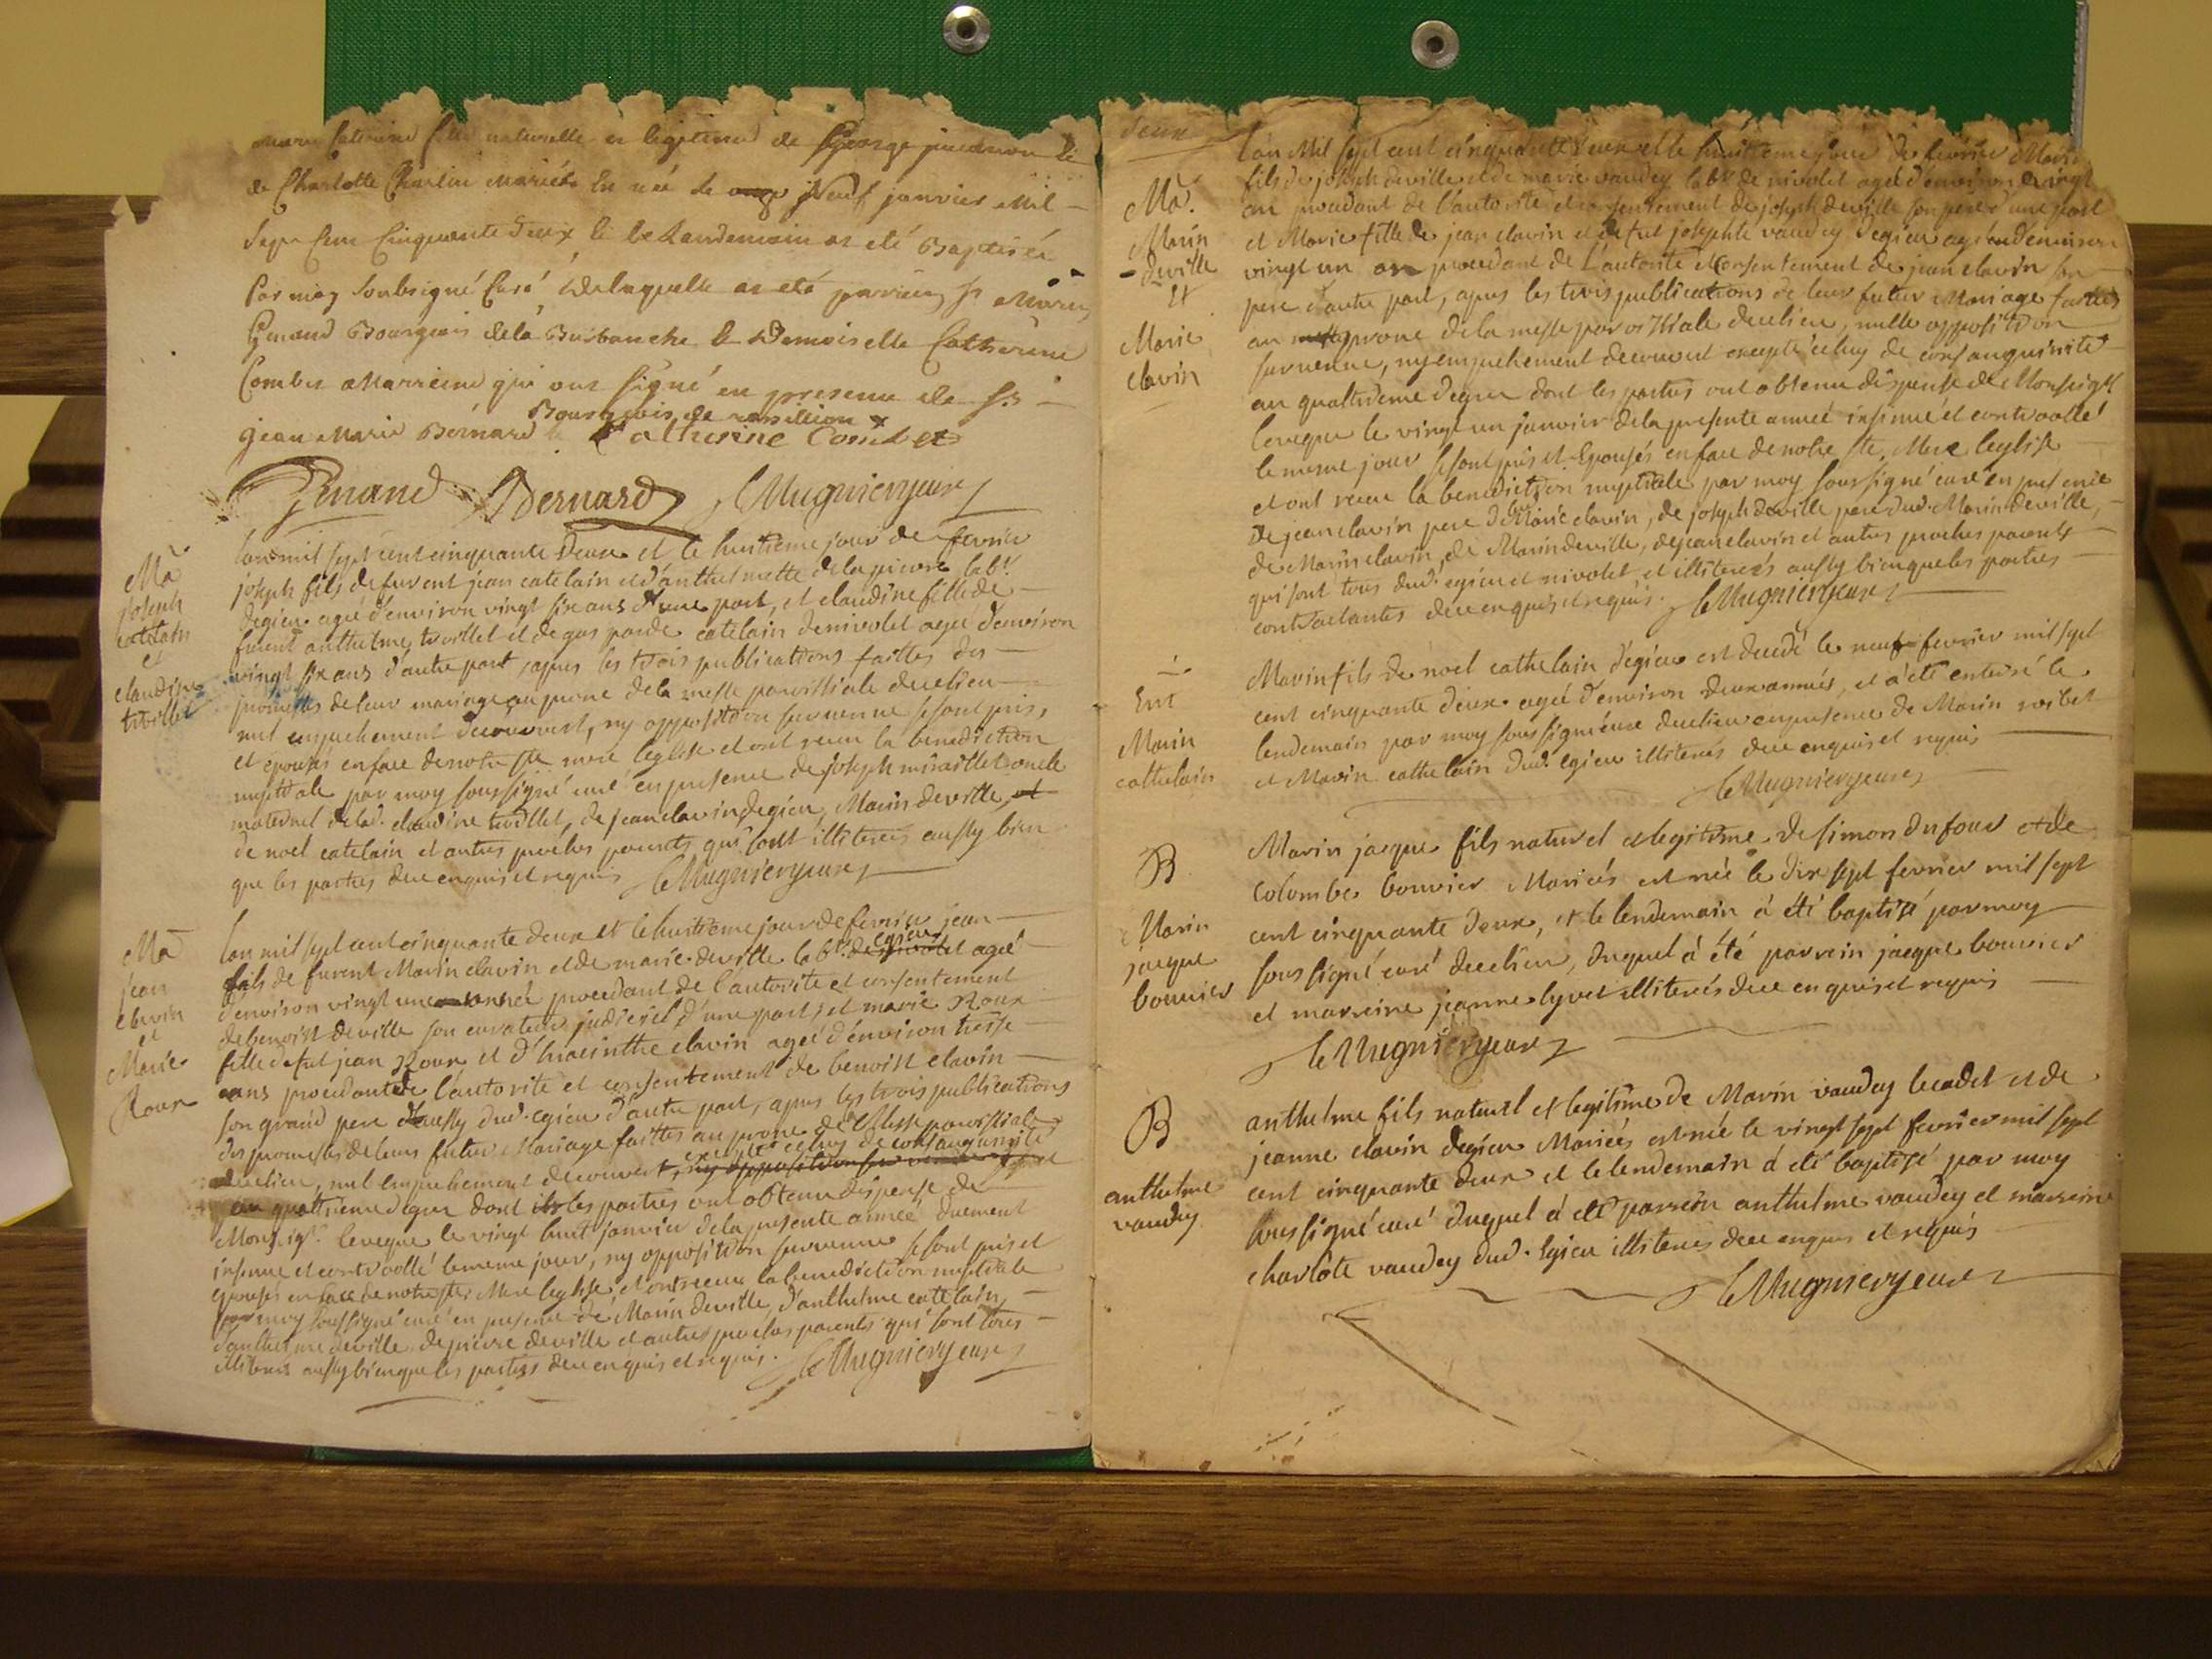 marie Caterine fille naturelle et legitime de George
de Charlotte Charlin Mariés En née le neuf janvier Mil
Sept Cent Cinquante deux Et le Landemain at eté Baptisée
Par moy Soubsigné Curé delaquelle at eté parrain Sr Marin
Gimand Bourgeois de la Burbanche & Demoiselle Catherine
Combet Marreine qui ont signé en presence de Sr
Bourgeois de rossillion
jean Marie Bernard Catherine Combet
Gimand Bernard Le Mugnier jeure
Ma
joseph
catelain
et
claudine
trvillet
lan mil sept cent cinquante deux et le huitieme jour de fevrier
joseph fils de furent jean catelain et d'anthelmette delapierre labr.
degieu ageé d'environ vingt six ans d'une part, et claudine fille de
furent anthelme et de catelain denivolet ageé d'environ
vingt six ans d'autre part, apres les trois publications faittes des
promesses de leur mariage au prone de la messe parroissiale decelieu
nul empechement decouvert, ny opposition survenue se sont pris,
et epousés en face de notre ste mere leglise et ont receu la benediction
nuptiale par moy soussigné curé en presence de joseph oncle
maternel delad. claudine de jean clavin degieu, Marin deville, et
de noel catelain et autres proches parents qui sont illiterés aussy bien
que les parties de ce enquis et requis Le Mugnier jeure
Ma
jean
clavin
et
Marie
Roux
lan mil sept cent cinquante deux et le huitieme jour de fevrier jean
egieu
fils de furent Marin clavin et de marie deville labr. de nivolet ageé
d'environ vingt une année procedant de l'autorité et consentement
de benoist deville son curateur judiciel d'une part, et marie Roux
fille de fut jean Roux et d'hiacinthe clavin ageé d'environ treise
ans procedante de l'autorité et consentement de benoist clavin
son grand pere aussy dud. egieu d'autre part, apres les trois publications
des promesses de leur futur Mariage faittes au prone de la Messe parroissiale
excepté celuy de consanguinité
decelieu, nul empechement decouvert, ny opposition survenue
au quattrieme degrer dont les parties ont obtenu dispense de
Monseigr. leveque le vingt huit janvier de la presente année duement
insinué et controollé le meme jour, ny opposition survenue se sont pris et
epousés en face de notre ste Mere leglise, et ont receu la benediction nuptiale
par moy soussigné curé en presence de Marin deville, d'anthelme catelain,
d'anthelme deville de pierre deville et autres proches parents qui sont tous
illiterés aussy bien que les parties de ce enquis et requis. Le Mugnier jeure
deux
Ma.
Marin
deville
Et
Marie
clavin
lan Mil sept cent cinquante deux et le huitieme jour de fevrier Marin
fils de joseph deville et de marie vaudey labr. de nivolet ageé d'environ vingt
an procedant de l'autorité et consentement de joseph deville son pere d'une part
et Marie fille de jean clavin et de fut josephte vaudey degieu ageé d'environ
vingt un an procedant de L'autorité et consentement de jean clavin son
pere d'autre part, apres les trois publications de leur futur Mariage faittes
au prone de la messe parroissiale decelieu, nulle opposition
survenue, ny empechement decouvert excepté celuy de consanguinité
au quattrieme degrer dont les parties ont obtenu dispense de Monseigr
leveque le vingt un janvier de la presente anneé insinué et controollé
le meme jour se sont pris et Epousés en face de notre ste Mere leglise
et ont receu la benediction nuptiale par moy soussigné curé en presence
de jean clavin pere de Marie clavin, de joseph deville pere dud. Marin deville,
de Marin clavin, de Marin deville, de jean clavin et autres proches parents
qui sont tous dud. egieu et nivolet, et illiterés aussy bien que les parties
contractantes de ce enquis et requis. Le Mugnier jeure
Ent
Marin
cathelain
Marin fils de noel cathelain d'egieu est decedé le neuf fevrier mil sept
cent cinquante deux ageé d'environ deux anneés, et a été enterré le
lendemain par moy soussigné cure decelieu en presence de Marin
et Marin cathelain dud. egieu illiterés de ce enquis et requis
Le Mugnier jeure
B
Marin
jacque
bouvier
Marin jacque fils naturel et legitime de simon dufour et de
Colombe bouvier Mariés est né le dix sept fevrier mil sept
cent cinquante deux, et le lendemain a été baptisé par moy
soussigné curé decelieu, duquel a été parrein jacque bouvier
et marreine jeanne lyvet illiterés de ce enquis et requis
Le Mugnier jeure
B
anthelme
vaudey
anthelme fils naturel et legitime de Marin vaudey lecadet et de
jeanne clavin degieu Mariés est né le vingt sept fevrier mil sept
cent cinquante deux et le lendemain a été baptisé par moy
soussigné curé duquel a été parrein anthelme vaudey et marreine
charlote vaudey dud. Egieu illiterés de ce enquis et requis
Le Mugnier jeure